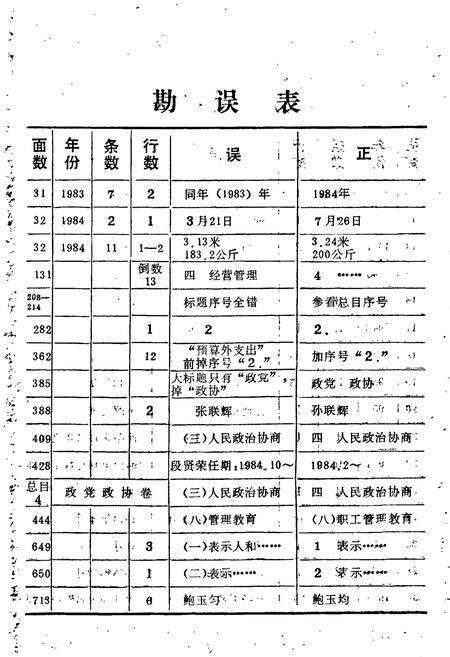 勘误表
面数 年份 条数 行数 误 正
31 1983 7 2 同年（1983）年 1984年
32 1984 2 1 3月21日 7月26日
32 1984 11 1—2 3.13米 183.2公斤 3.24米 200公斤
131 倒数13 四 经营管理 4 ……
208—214 标题序号全错 参看总目序号
282 1 2 2.
362 12 “预算外支出”前掉序号“2.” 加序号“2.”
385 大标题只有“政党”，掉“政协” 政党 政协
388 2 张联辉 孙联辉
409 （三）人民政治协商 四 人民政治协商
428 段贤荣任期：1984.10～ 1984.2～
总目4 政党政协卷 （三）人民政治协商 四 人民政治协商
444 （八）管理教育 （八）职工管理教育
649 3 （一）表示人和…… 1 表示……
650 1 （二）表示…… 2 表示……
713 6 鲍玉匀 鲍玉均